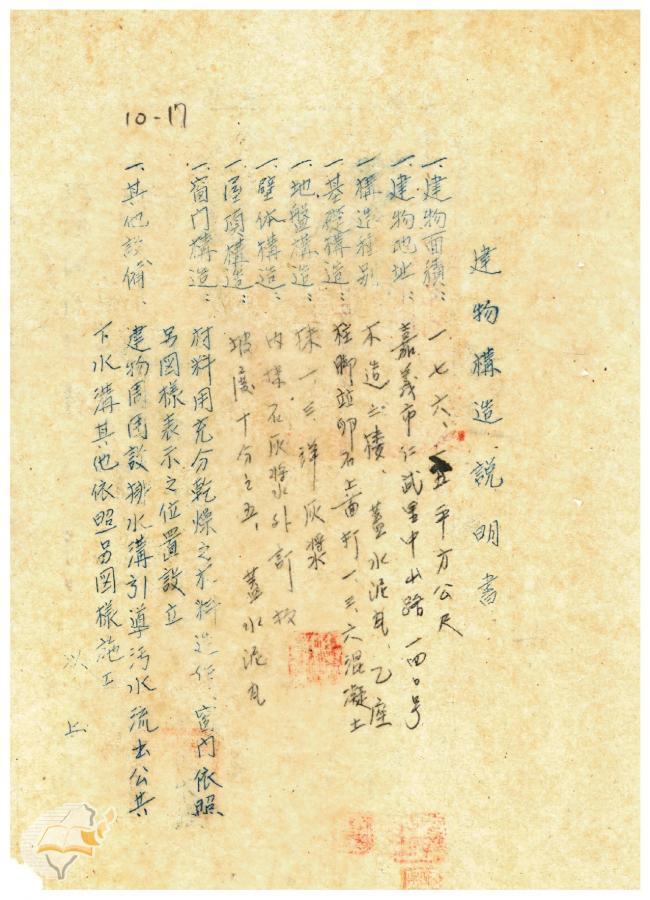 10-17
建物構造説明書
一、建物面積：一七六、五平方公尺
一、建物地址：嘉義市仁武里中山路一四〇号
一、構造種別：木造二楼、蓋水泥瓦、乙座
一、基礎構造：柱脚竝卵石上面打一、三、六混凝土
一、地盤構造：抹一、三、洋灰漿
一、壁体構造：内抹石灰漿外訂板
一、屋頂構造：坡度十分之五、蓋水泥瓦
一、窗门構造：材料用充分乾燥之木料造作、窗门依照
另図樣表示之位置設立
一、其他設備、建物周囲設排水溝引導汚水流出公共
下水溝其他依照另図樣施工
以上